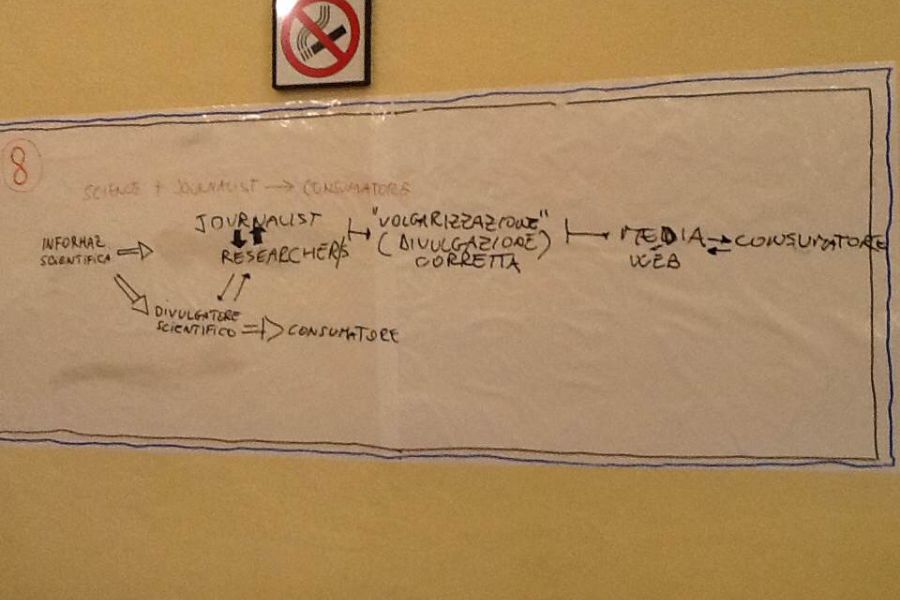 8
SCIENCE + JOURNALIST → CONSUMATORE
JOURNALIST
"VOLGARIZZAZIONE"
INFORMAZ.
SCIENTIFICA
RESEARCHER/S
(DIVULGAZIONE)
CORRETTA
MEDIA
WEB
CONSUMATORE
DIVULGATORE
SCIENTIFICO
CONSUMATORE